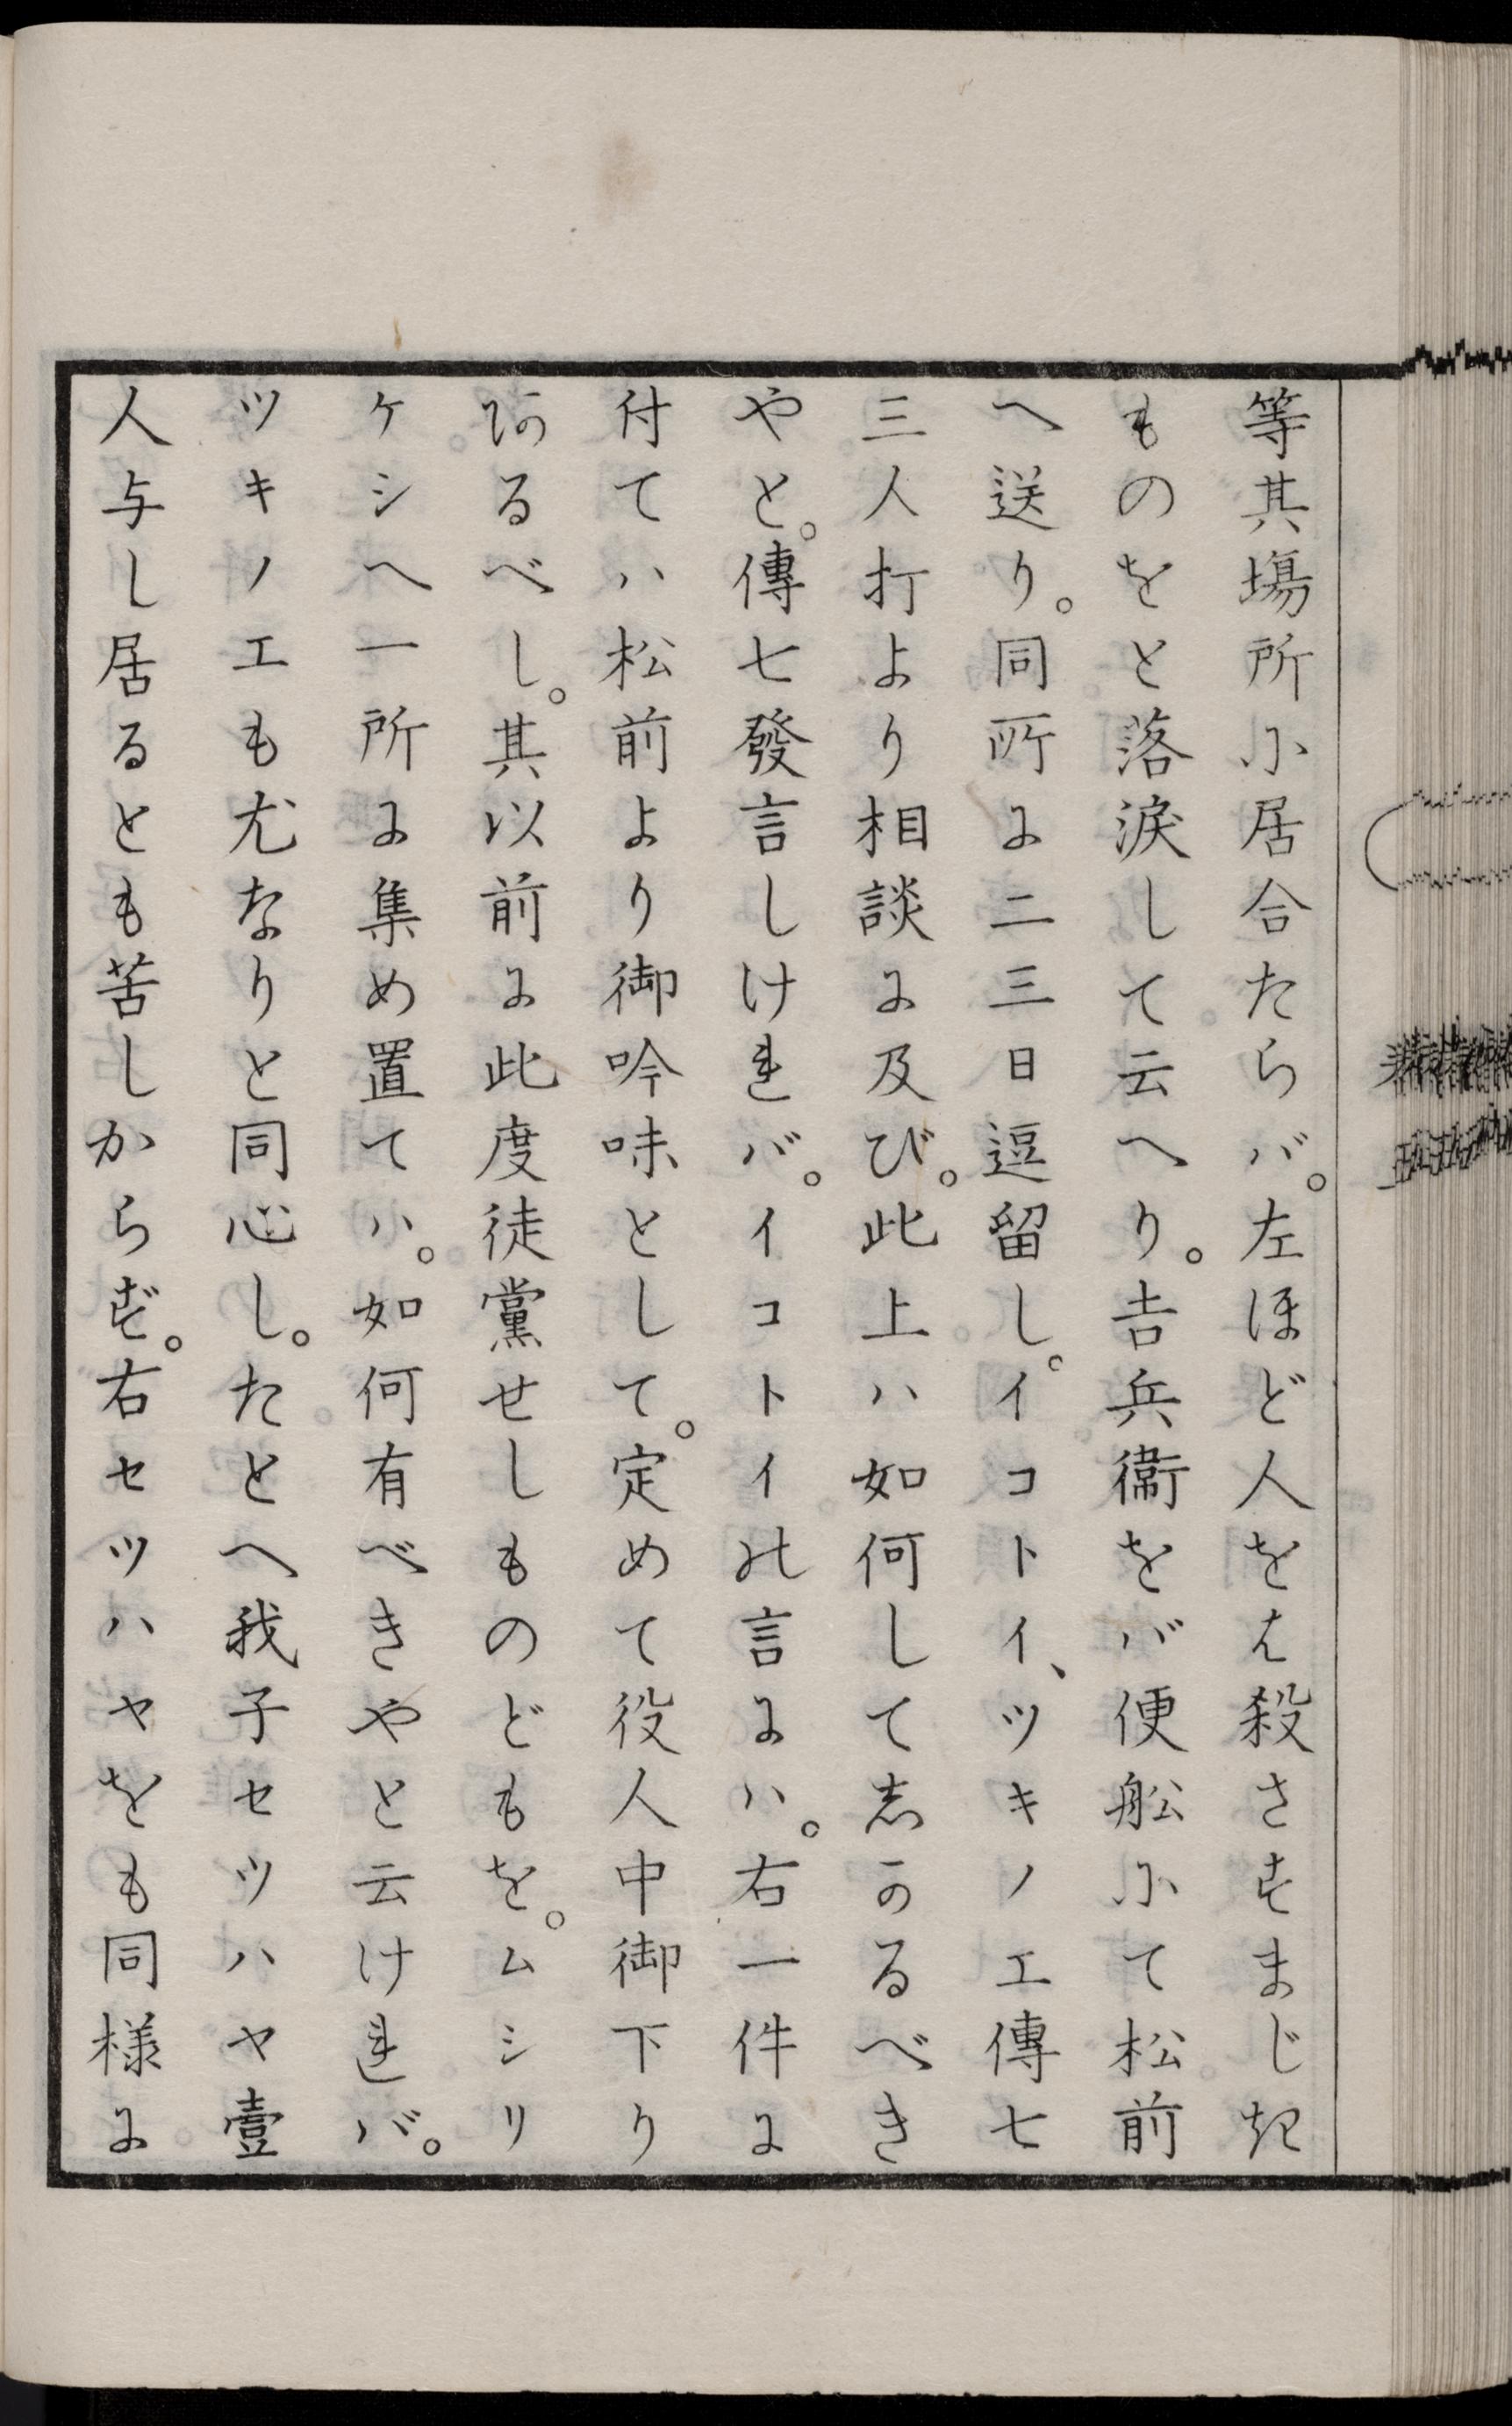 等其塲所に居合たらバ。左ほど人をえ殺さすまじき
ものをと落涙して云へり。吉兵衞をバ便舩にて松前
へ送り。同所に二三日逗留し。イコトイ、ツキノエ傳七
三人打より相談に及び。此上ハ如何して志かるべき
やと。傳七發言しけれバ。イコトイの言にハ。右一件に
付てハ松前より御吟味として。定めて役人中御下り
あるべし。其以前に此度徒黨せしものどもを。ムシリ
ケシへ一所に集め置てハ。如何有べきやと云けれバ。
ツキノエも尤なりと同心し。たとへ我子セツハヤ壹
人与し居るとも苦しからず。右セツハヤをも同様に